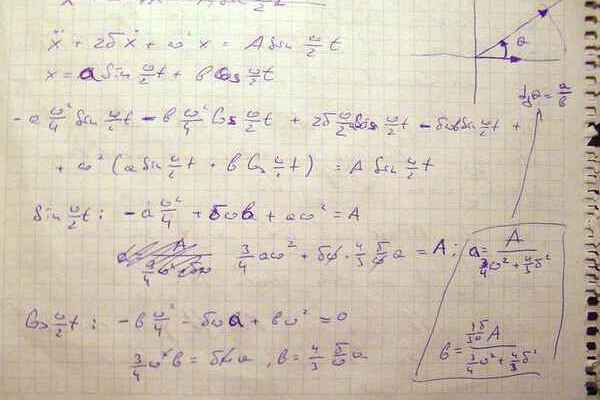 ẍ + 2δẋ + ω²x = A sin ω/2 t
θ
x = a sin ω/2 t + b cos ω/2 t
tg θ = a/b
- a ω²/4 sin ω/2 t - b ω²/4 cos ω/2 t + 2δ ω/2 a cos ω/2 t - δωb sin ω/2 t +
+ ω² (a sin ω/2 t + b cos ω/2 t) = A sin ω/2 t
sin ω/2 t : - a ω²/4 + δωb + aω² = A
3/4 aω² + δω · 4/3 δ/ω a = A ; a = A / (3/4 ω² + 4/3 δ²)
cos ω/2 t : - b ω²/4 - δωa + bω² = 0
3/4 ω² b = δωa , b = 4/3 δ/ω a
b = (4δ/3ω A) / (3/4 ω² + 4/3 δ²)